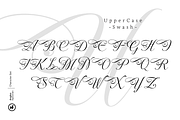 UpperCase
-Swash-
A B C D E F G H I
J K L M N O P Q R
S T U V W X Y Z